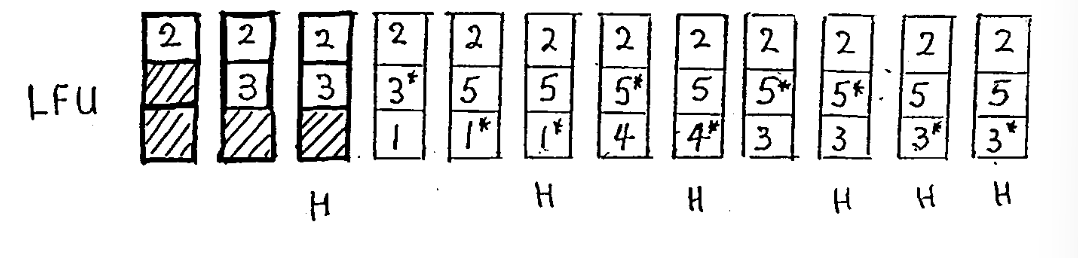 2 2 2 2 2 2 2 2 2 2 2 2
LFU 3 3 3* 5 5 5* 5 5* 5* 5 5
1 1* 1* 4 4* 3 3 3* 3*
H H H H H H